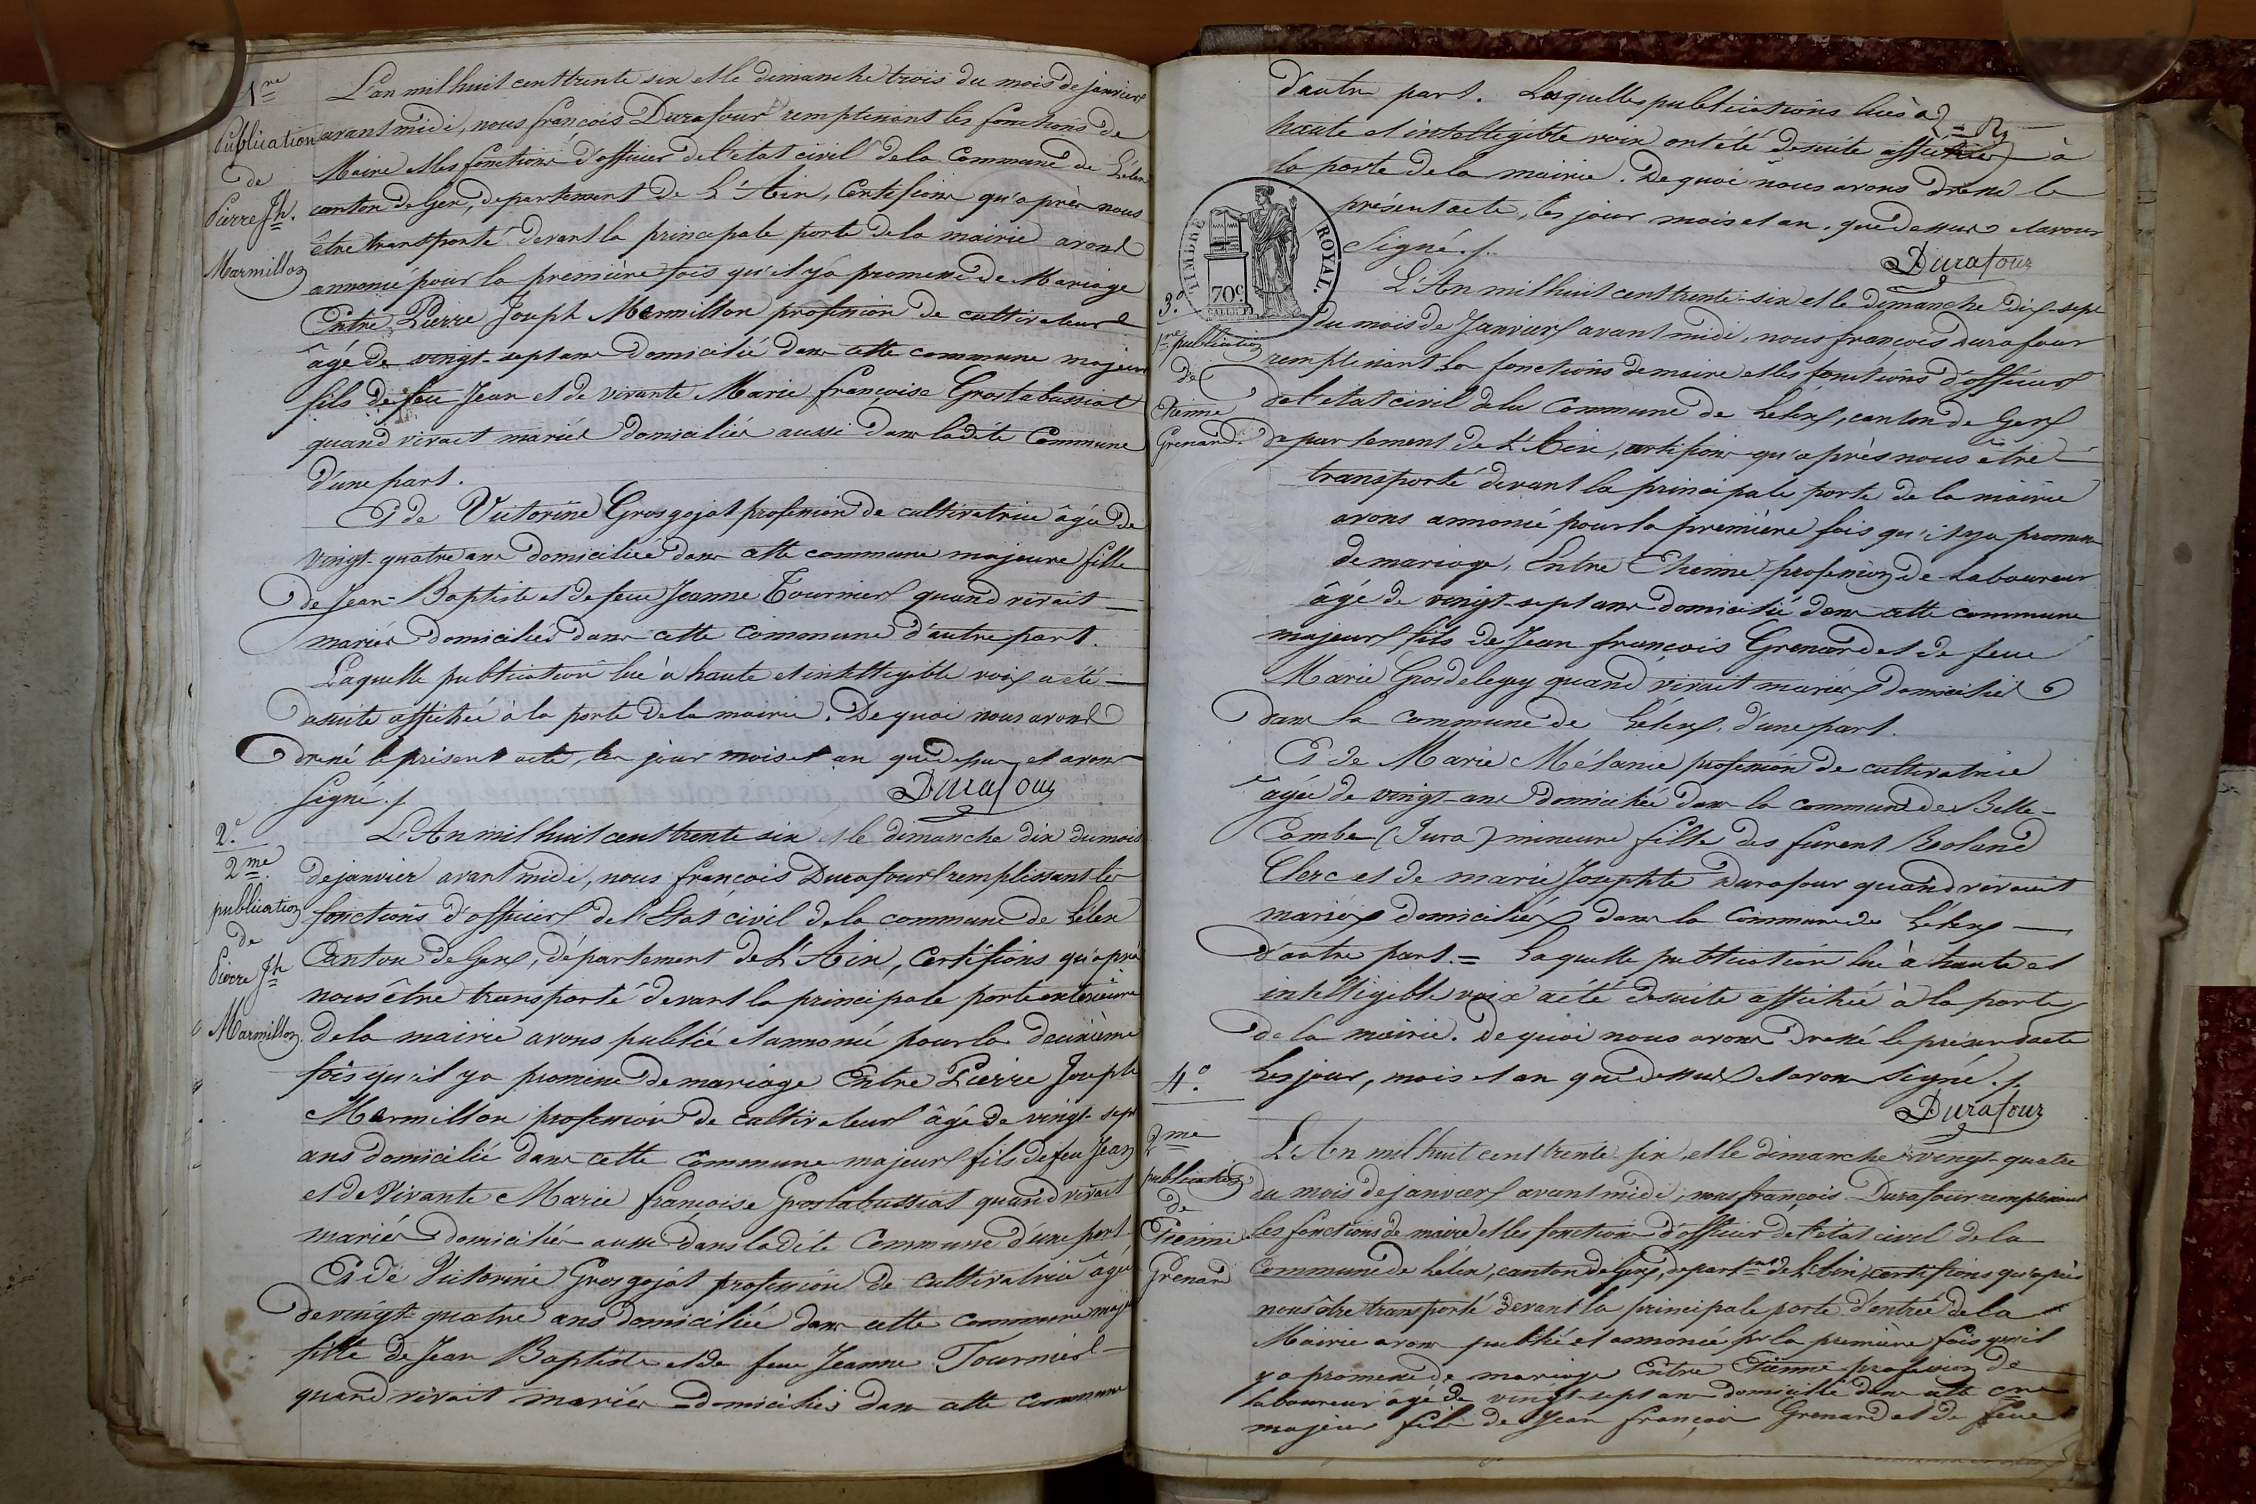 1re
Publication
de
Pierre Jh.
Marmillon
L'an mil huit cent trente six et le dimanche trois du mois de janvier
avant midi, nous françois Durafour remplissant les fonctions de
Maire et les fonctions d'officier de l'etat civil de la Commune de Lélex
canton de Gex, departement de L'Ain, Certifions qu'après nous
être transporté devant la principale porte de la mairie avons
annoncé pour la première fois qu'il y a promesse de Mariage
Entre Pierre Joseph Marmillon profession de cultivateur
âgé de vingt-sept ans domicilié dans cette commune majeur
fils de feu Jean et de vivante Marie françoise Groslabussiat
quand vivait mariés domiciliés aussi dans ladite Commune
d'une part.
Et de Victorine Grosgojat profession de cultivatrice âgée de
vingt-quatre ans domiciliée dans cette commune majeure fille
de Jean-Baptiste et de feue Jeanne Tournier quand vivait
mariés domiciliés dans cette commune d'autre part.
Laquelle publication lue à haute et intelligible voix a été
desuite affichée à la porte de la mairie. De quoi nous avons
dressé le présent acte, les jour mois et an que dessus et avons
signé ./.
Durafour
2°.
2me.
publication
de
Pierre Jh
Marmillon.
L'An mil huit cent trente six et le dimanche dix du mois
de janvier avant midi, nous françois Durafour remplissant les
fonctions d'officier de l'Etat civil de la commune de Lélex
Canton de Gex, département de L'Ain, Certifions qu'après
nous être transporté devant la principale porte extérieure
de la mairie avons publié et annoncé pour la deuxième
fois qu'il y a promesse de mariage Entre Pierre Joseph
Marmillon profession de cultivateur âgé de vingt-sept
ans domicilié dans cette Commune majeur fils de feu Jean
et de Vivante Marie françoise Groslabussiat quand vivait
mariés domiciliés aussi dans ladite Commune d'une part
Et de Victorine Grosgojat profession de cultivatrice âgée
de vingt-quatre ans domiciliée dans cette commune maje
fille de Jean Baptiste et de feue Jeanne Tournier
quand vivait mariés domiciliés dans cette commune
d'autre part. Lesquelles publications lues à
haute et intelligible voix ont été desuite à
la porte de la mairie. De quoi nous avons dressé le
présent acte, les jour mois et an que dessus et avons
signé ./.
Durafour
TIMBRE ROYAL.
70c
3.°
1re publication
de
Etienne
Grenard.
L'An mil huit cent trente-six et le dimanche dix-sept
du mois de Janvier avant midi, nous françois Durafour
remplissant les fonctions de maire et les fonctions d'officier
de l'etat civil de la Commune de Lélex, canton de Gex
departement de L'Ain, certifions qu'après nous être
transporté devant la principale porte de la mairie
avons annoncé pour la première fois qu'il y a promesse
de mariage, Entre Etienne profession de Laboureur
âgé de vingt-sept ans domicilié dans cette commune
majeur fils de Jean françois Grenard et de feue
Marie Grosdelegey quand vivait mariés domicilié
dans la commune de Lélex, d'une part.
Et de Marie Mélanie profession de cultivatrice
agée de vingt-ans domiciliée dans la commune de Belle-
Combe (Jura) mineure fille des furent Roland
Clerc et de marie Josephte Durafour quand vivait
mariés domiciliés dans la Commune de Lélex
d'autre part.= Laquelle publication lue à haute et
intelligible voix a été desuite affichée à la porte
de la mairie. De quoi nous avons dressé le présent acte
Les jour, mois et an que dessus et avons signé ./.
Durafour
4°.
2me
publication
de
Etienne
Grenard
L'An mil huit cent trente six, et le dimanche vingt-quatre
du mois de janvier avant midi, nous françois Durafour remplissant
les fonctions de maire et les fonctions d'officier de l'etat civil de la
Commune de Lélex, canton de Gex, département de L'Ain, certifions qu'après
nous être transporté devant la principale porte d'entrée de la
Mairie avons publié et annoncé pr la première fois qu'il
y a promesse de mariage Entre Etienne profession de
laboureur âgé de vingt-sept ans domicilié dans cette cne
majeur fils de Jean françois Grenard et de feue